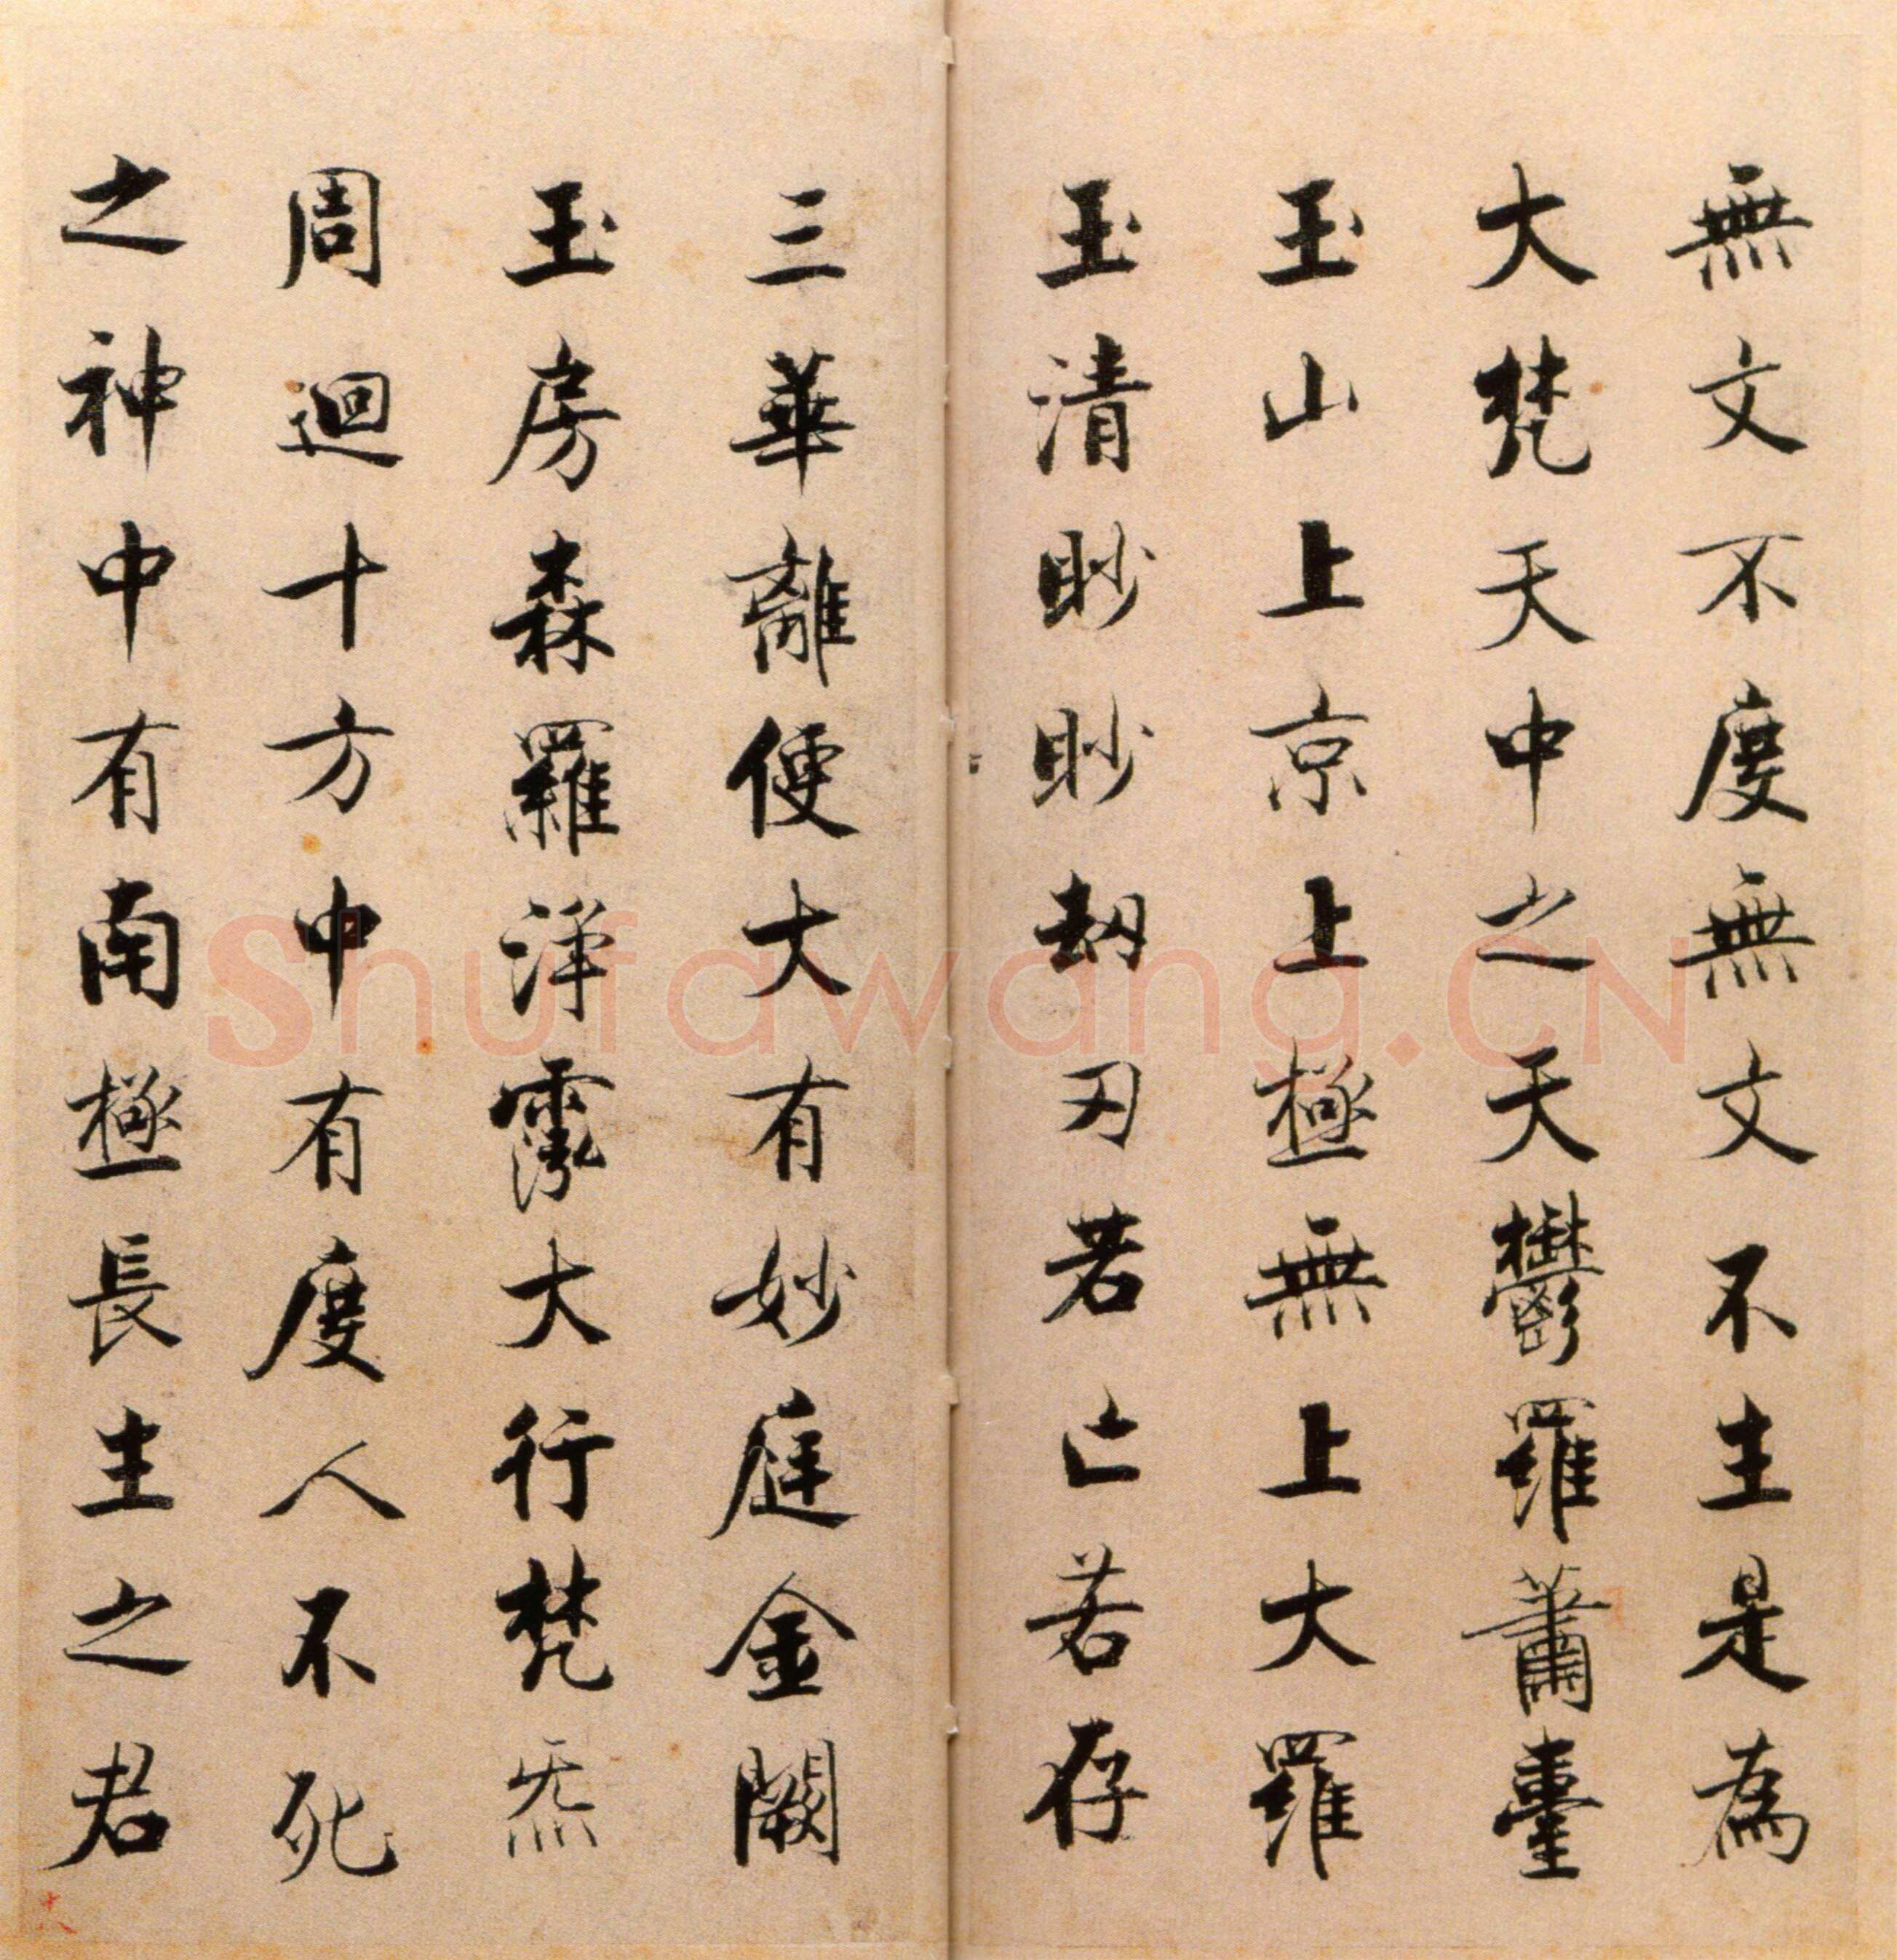 無文不度無文不生是為
大梵天中之天鬱羅蕭臺
玉山上京上極無上大羅
玉清眇眇劫刃若亡若存
三華離便大有妙庭金闕
玉房森羅淨霐大行梵炁
周迴十方中有度人不死
之神中有南極長生之君
十八
Shufawang.CN